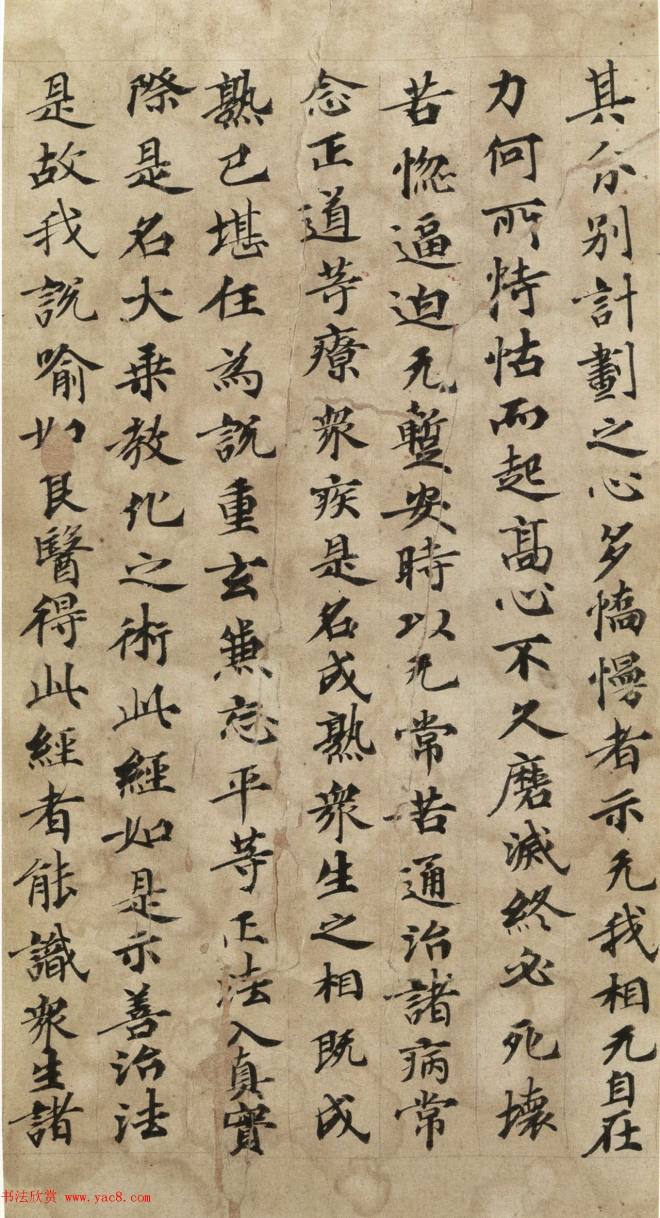 其分別計劃之心多憍慢者示无我相无自在
力何所恃怙而起高心不久磨滅終必死壞
苦惱逼迫无蹔安時以无常苦通治諸病常
念正道等療眾疾是名成熟眾生之相既成
熟已堪任為說重玄兼忘平等正法入真實
際是名大乘教化之術此經如是示善治法
是故我說喻如良醫得此經者能識眾生諸
书法欣赏 www.yac8.com